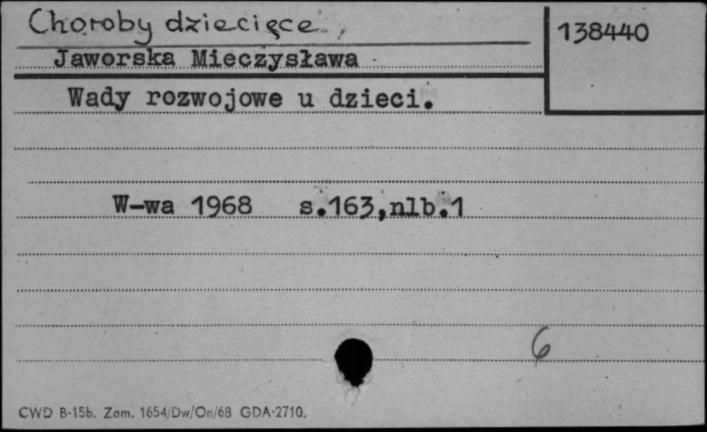 Choroby dziecięce
138440
Jaworska Mieczysława
Wady rozwojowe u dzieci.
W-wa 1968 s.163,nlb.1
6
CWD B-15b. Zam. 1654/Dw/On/68 GDA-2710.